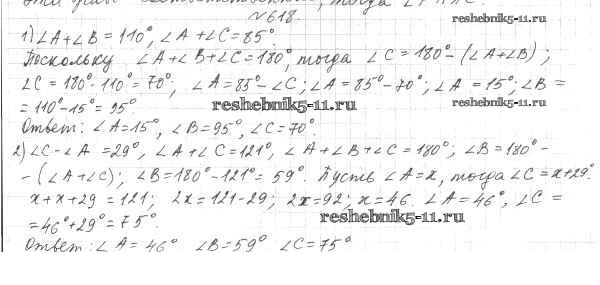 тогда
№618. reshebnik5-11.ru
1) ∠A+∠B=110°, ∠A+∠C=85°.
Поскольку ∠A+∠B+∠C=180°, тогда ∠C=180°-(∠A+∠B);
∠C=180°-110°=70°, ∠A=85°-∠C; ∠A=85°-70°; ∠A=15°; ∠B=
=110°-15°=95°. reshebnik5-11.ru reshebnik5-11.ru
Ответ: ∠A=15°, ∠B=95°, ∠C=70°.
2) ∠C-∠A=29°, ∠A+∠C=121°, ∠A+∠B+∠C=180°; ∠B=180°-
-(∠A+∠C); ∠B=180°-121°=59°. Пусть ∠A=x, тогда ∠C=x+29°
x+x+29=121; 2x=121-29; 2x=92; x=46. ∠A=46°, ∠C=
=46°+29°=75°. reshebnik5-11.ru
Ответ: ∠A=46° ∠B=59° ∠C=75°